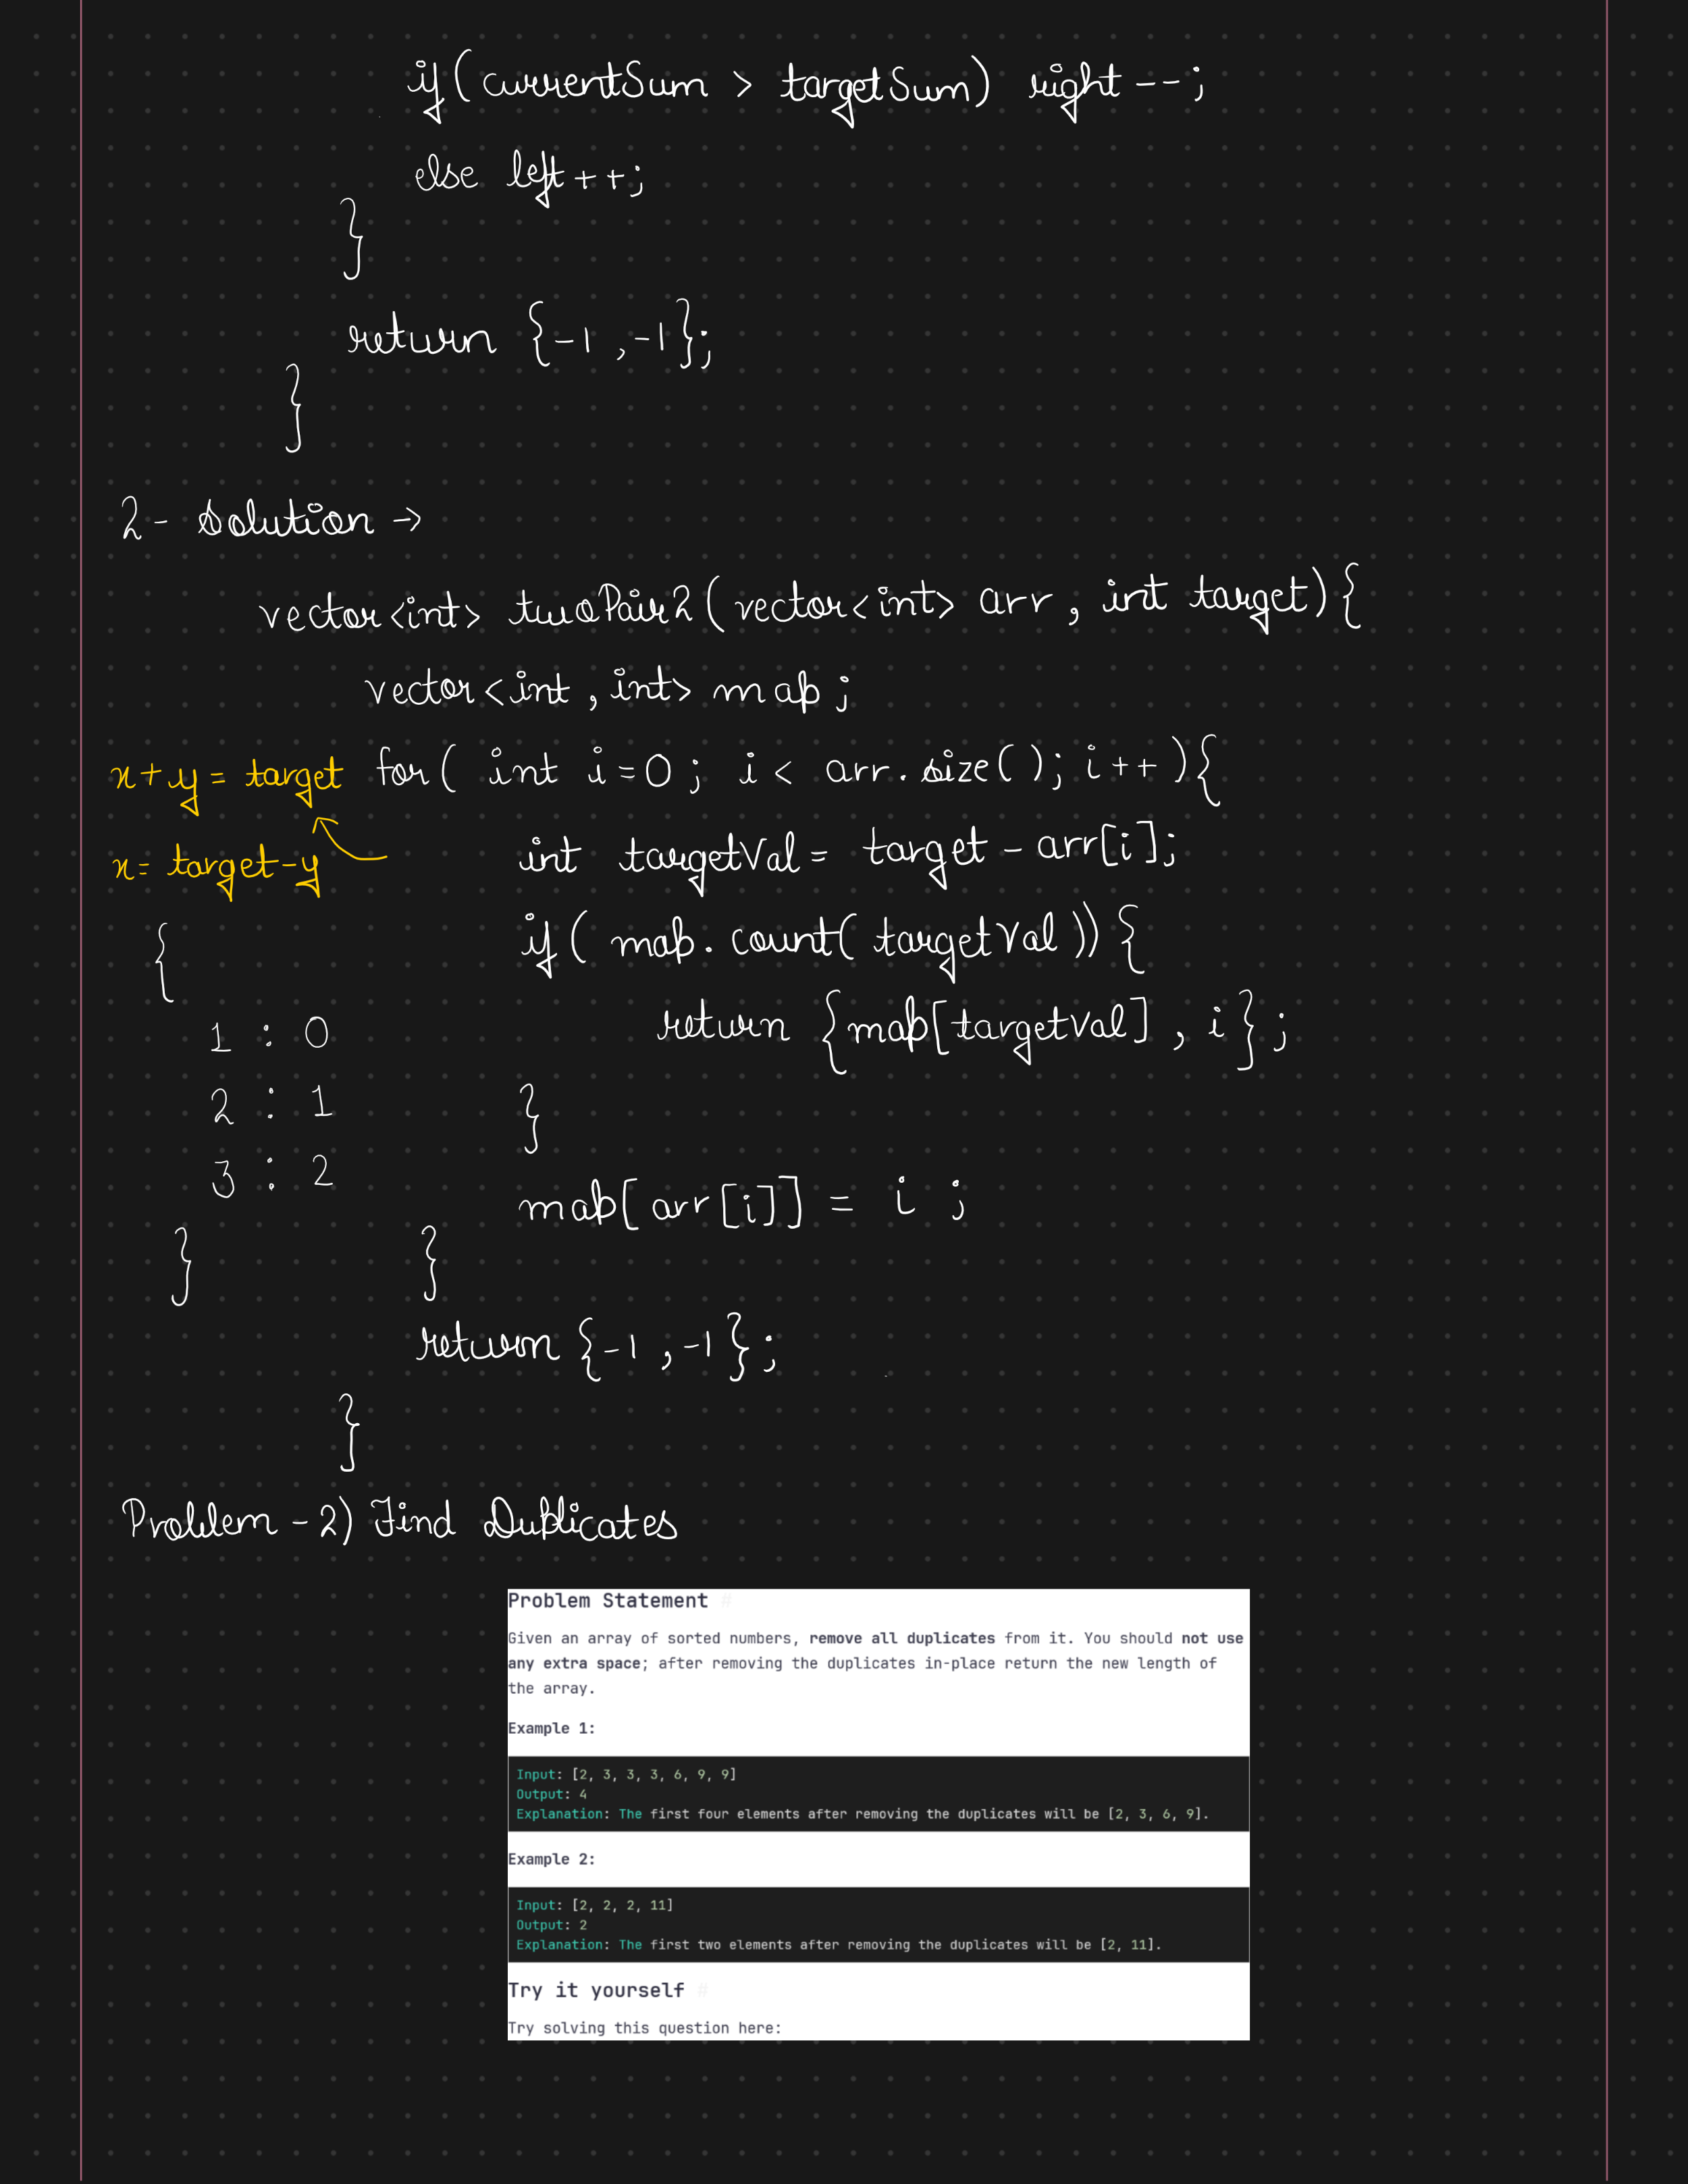 if(currentSum > targetSum) right--;
else left++;
}
return {-1,-1};
}
2- Solution →
vector<int> twoPair2(vector<int> arr, int target){
vector<int, int> map;
x+y = target for( int i=0; i < arr.size(); i++){
x= target-y int targetVal = target - arr[i];
{ if( map.count( targetVal)){
1 : 0 return {map[targetVal], i};
2 : 1 }
3 : 2 map[arr[i]] = i ;
} }
return {-1,-1};
}
Problem - 2) Find Duplicates
Problem Statement #
Given an array of sorted numbers, remove all duplicates from it. You should not use
any extra space; after removing the duplicates in-place return the new length of
the array.
Example 1:
Input: [2, 3, 3, 3, 6, 9, 9]
Output: 4
Explanation: The first four elements after removing the duplicates will be [2, 3, 6, 9].
Example 2:
Input: [2, 2, 2, 11]
Output: 2
Explanation: The first two elements after removing the duplicates will be [2, 11].
Try it yourself #
Try solving this question here: